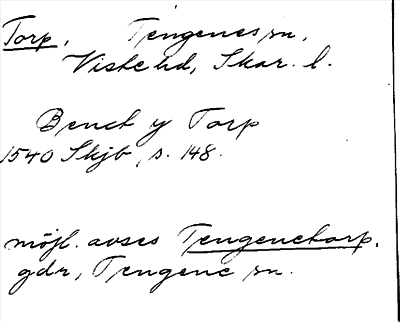 Torp, Tengenes sn,
Viste hd, Skar. l.
Benct y Torp
1540 Skjb, s. 148.
möjl. avses Tengenetorp,
gdr, Tengene sn.